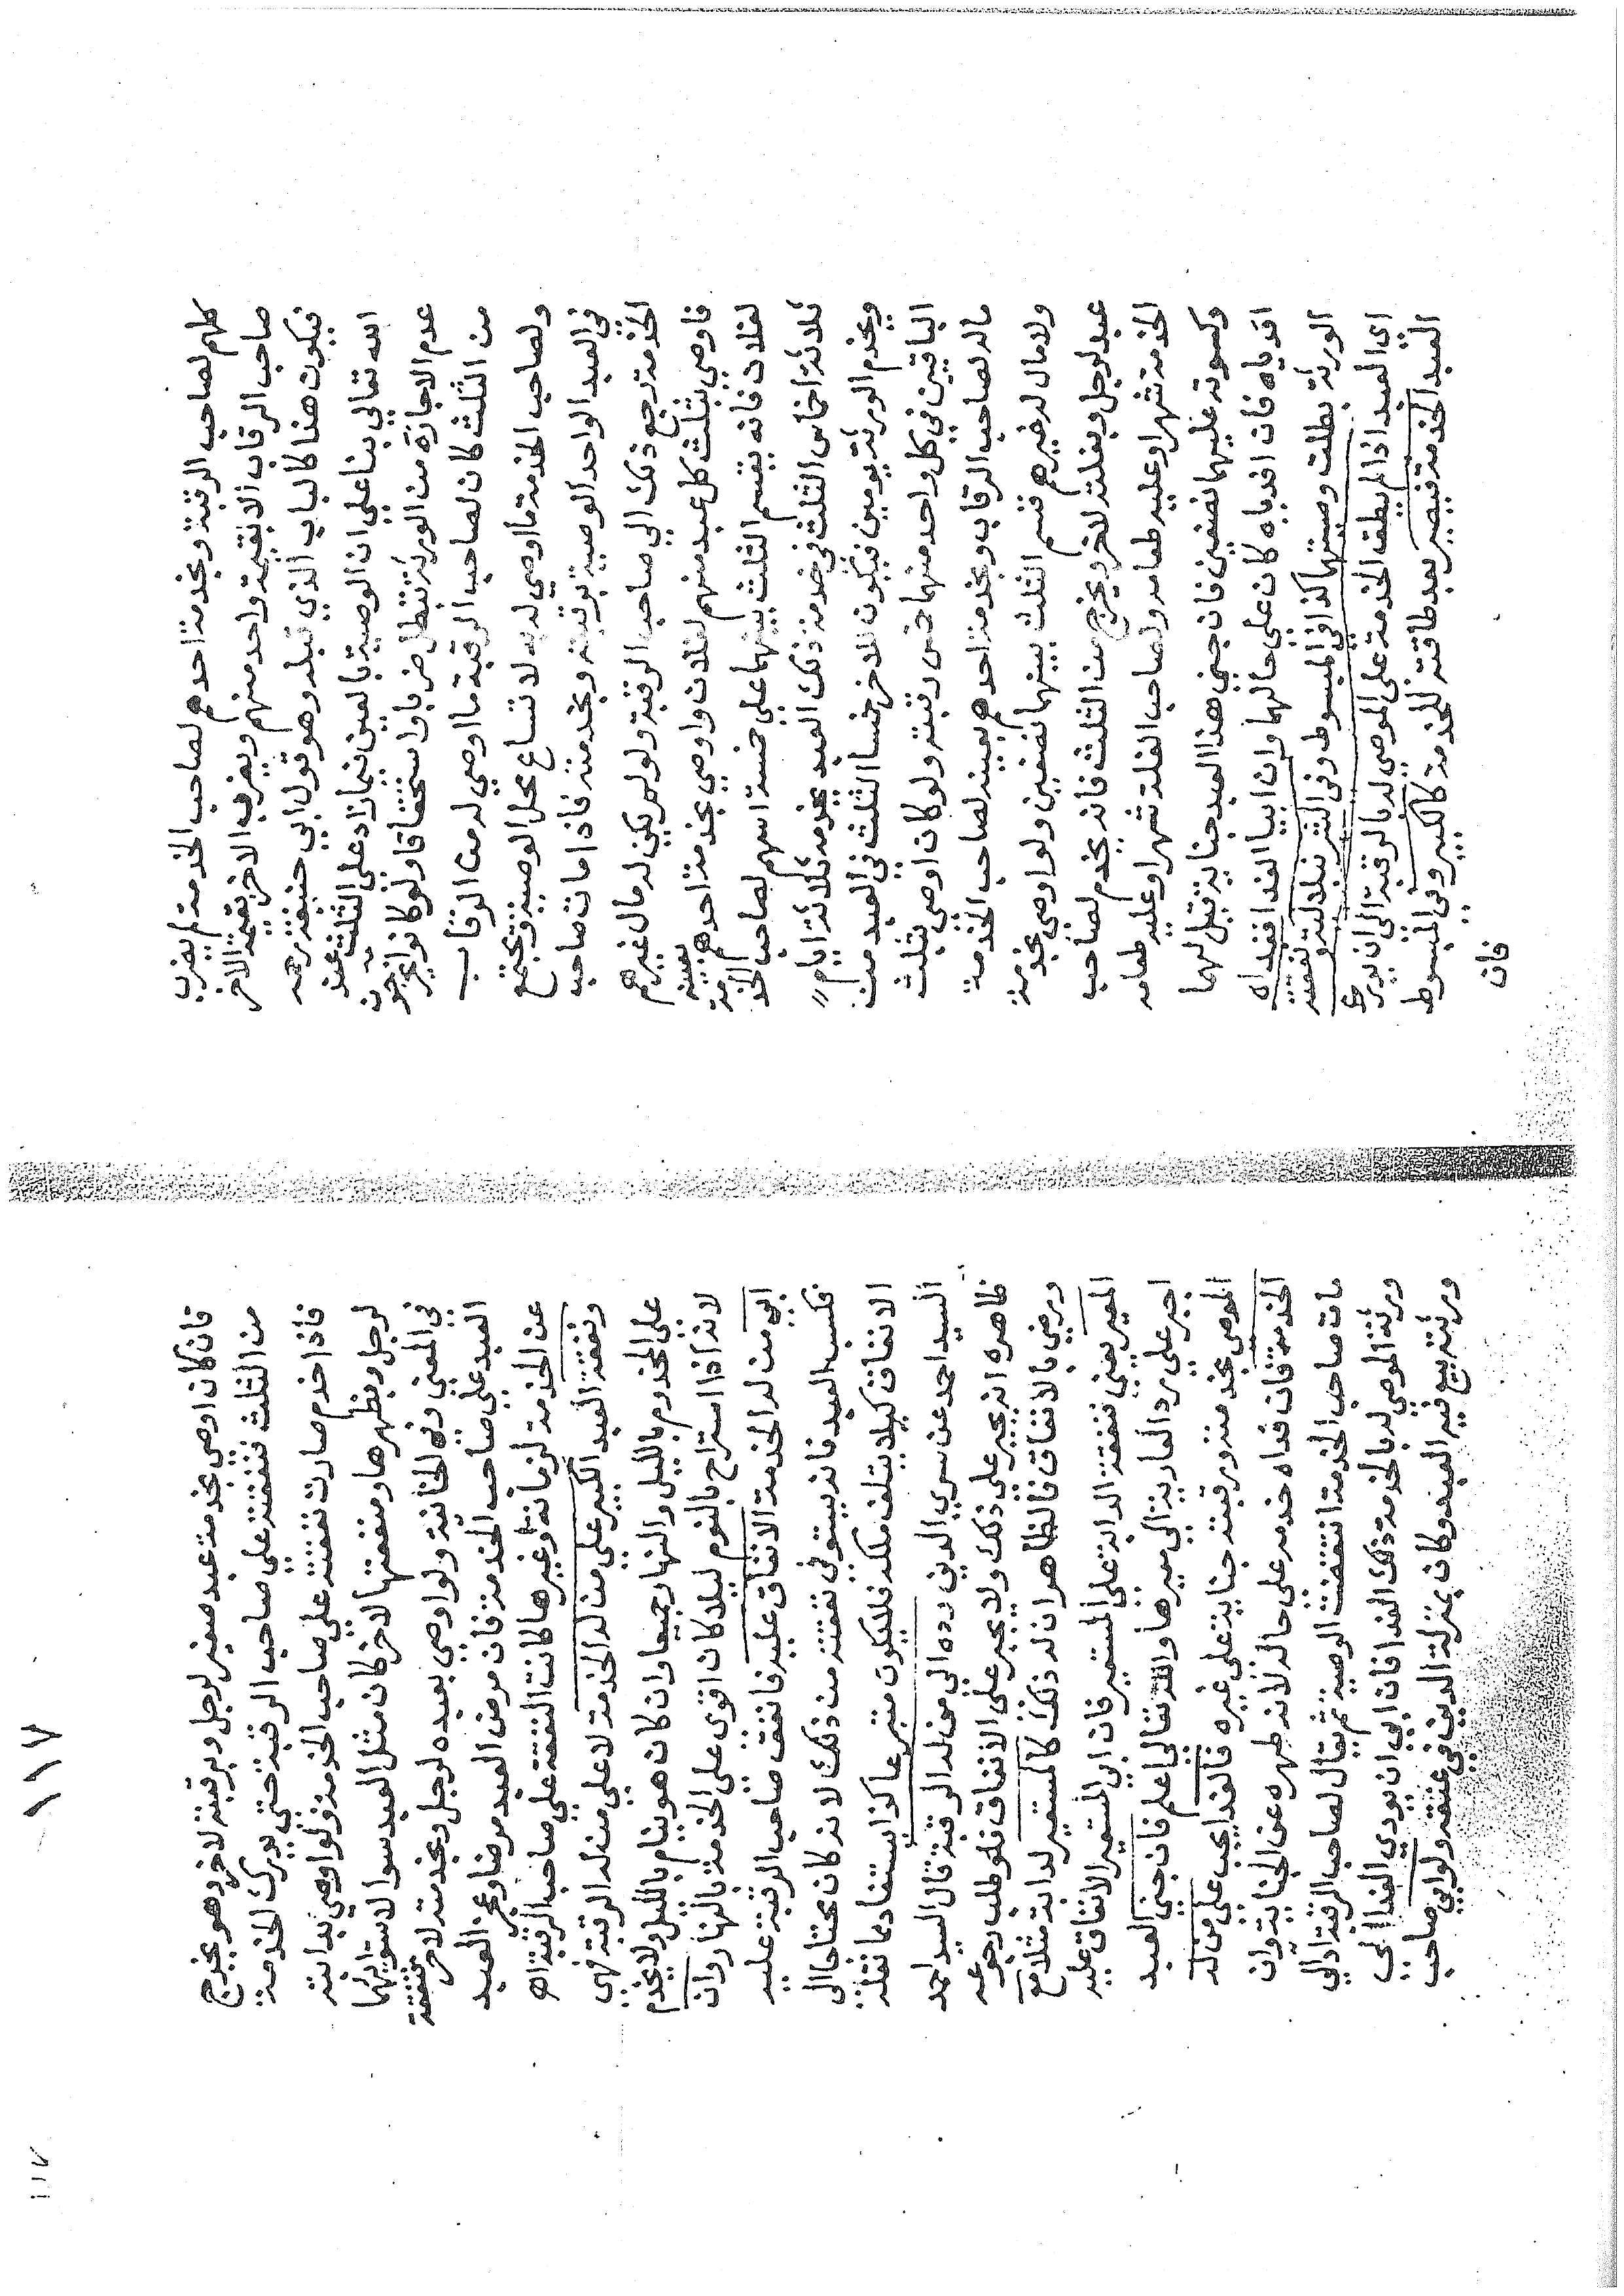 كلهم لصاحب الرقبة وبخدمة احدهم لصاحب الخدمة لم يضرب
صاحب الرقاب الا بقيمة واحد منهم ويضرب الاخر بقيمة الاخر
فيكون هذا كالباب الذي قبله وهو قول ابي حنيفة رحمه
الله تعالى بنا على ان الوصية بالعين فيما زاد على الثلث عند
عدم الاجازة من الورثة تبطل ضربا واستحقاقا ولو كانوا يخرجون
من الثلث كان لصاحب الرقبة ما اوصي له من الرقاب
ولصاحب الخدمة ما اوصي له به لاتساع محل الوصية فيجتمع
في العبد الواحد الوصية برقبته وبخدمته فاذا مات صاحب
الخدمة رجع ذلك الى صاحب الرقبة ولو لم يكن له مال غيرهم
فاوصى بثلث كل عبد منهم لفلان واوصى بخدمة احدهم بعينه
لفلان فانه يقسم الثلث بينهما على خمسة اسهم لصاحب الخدمة
ثلاثة اخماس الثلث في خدمة ذلك العبد يخدمه ثلاثة ايام
ويخدم الورثة يومين فيكون للاخر خمسا الثلث في العبد من
الباقيين في كل واحد منهما خمس رقبته ولو كان اوصى بثلث
ماله لصاحب الرقاب وبخدمة احدهم بعينه لصاحب الخدمة
ولا مال له غيرهم قسم الثلث بينهما نصفين ولو اوصى بخدمة
عبد لرجل وبغلته لاخر ويخرج من الثلث فانه يخدم لصاحب
الخدمة شهرا وعليه طعامه ولصاحب الغلة شهرا وعليه طعامه
وكسوته عليهما نصفين فان جنى هذا العبد جناية قيل لهما
افدياه فان افدياه كان على حالهما وان ابيا الفدا ففداه
الورثة بطلت وصيتهما كذا في المبسوط وفي الشرنبلالية ونفقته
اي العبد اذا لم يطق الخدمة على الموصى له بالرقبة الى ان يدرك
العبد الخدمة فيصير بعد طاقته للخدمة كالكبير وفي المبسوط
فان
١١٧
فان كان اوصى بخدمة عبد صغير لرجل وبرقبته لاخر وهو يخرج
من الثلث فنفقته على صاحب الرقبة حتى يدرك الخدمة
فاذا خدم صارت نفقته على صاحب الخدمة ولو اوصى بدابة
لرجل وبظهرها ومنفعتها لاخر كان مثل العبد سوا لاستوائهما
في المعنى وفي الخانية ولو اوصى بعبده لرجل وبخدمته لاخر فنفقة
العبد على صاحب الخدمة فان مرض العبد مرضا وعجز العبد
عن الخدمة لزمانة وغيرها كانت النفقة على صاحب الرقبة اه
ونفقة العبد الكبير على من له الخدمة لا على من له الرقبة فهي
على المخدوم بالليل والنهار جميعا وان كان هو ينام بالليل ولا يخدم
لانه اذا استراح بالنوم ليلا كان اقوى على الخدمة بالنهار وان
ابى من له الخدمة الانفاق عليه فانفق صاحب الرقبة عليه
فكسب العبد فانه يستوفي نفقته من ذلك لانه كان محتاجا الى
الانفاق كيلا يتلف ملكه فلا يكون متبرعا كذا يستفاد مما نقله
السيد احمد عن سري الدين رده الى من له الرقبة قال السيد احمد
ظاهره انه يجبر على ذلك ولا يجبر على الانفاق فلو طلب رجوعه
ورضي بالانفاق فالظاهر ان له ذلك كالمستعير لدابة مثلا مع
المعير يعني نفقة الدابة على المستعير فان ابى المستعير الانفاق عليه
اجبر على رد العارية الى معيرها والله تعالى اعلم فان جنى العبد
الموصى بخدمته ورقبته جناية على غيره فالفدا يجب على من له
الخدمة فان فداه خدمه على حاله لانه طهره عن الجناية وان
مات صاحب الخدمة انتقضت الوصية ثم يقال لصاحب الرقبة ادالى
ورثة الموصى له بالخدمة ذلك الفدا فان ابى ان يودي الفدا الى
ورثته بيع فيه العبد وكان بمنزلة الدين في عنقه ولو ابى صاحب
١١٧